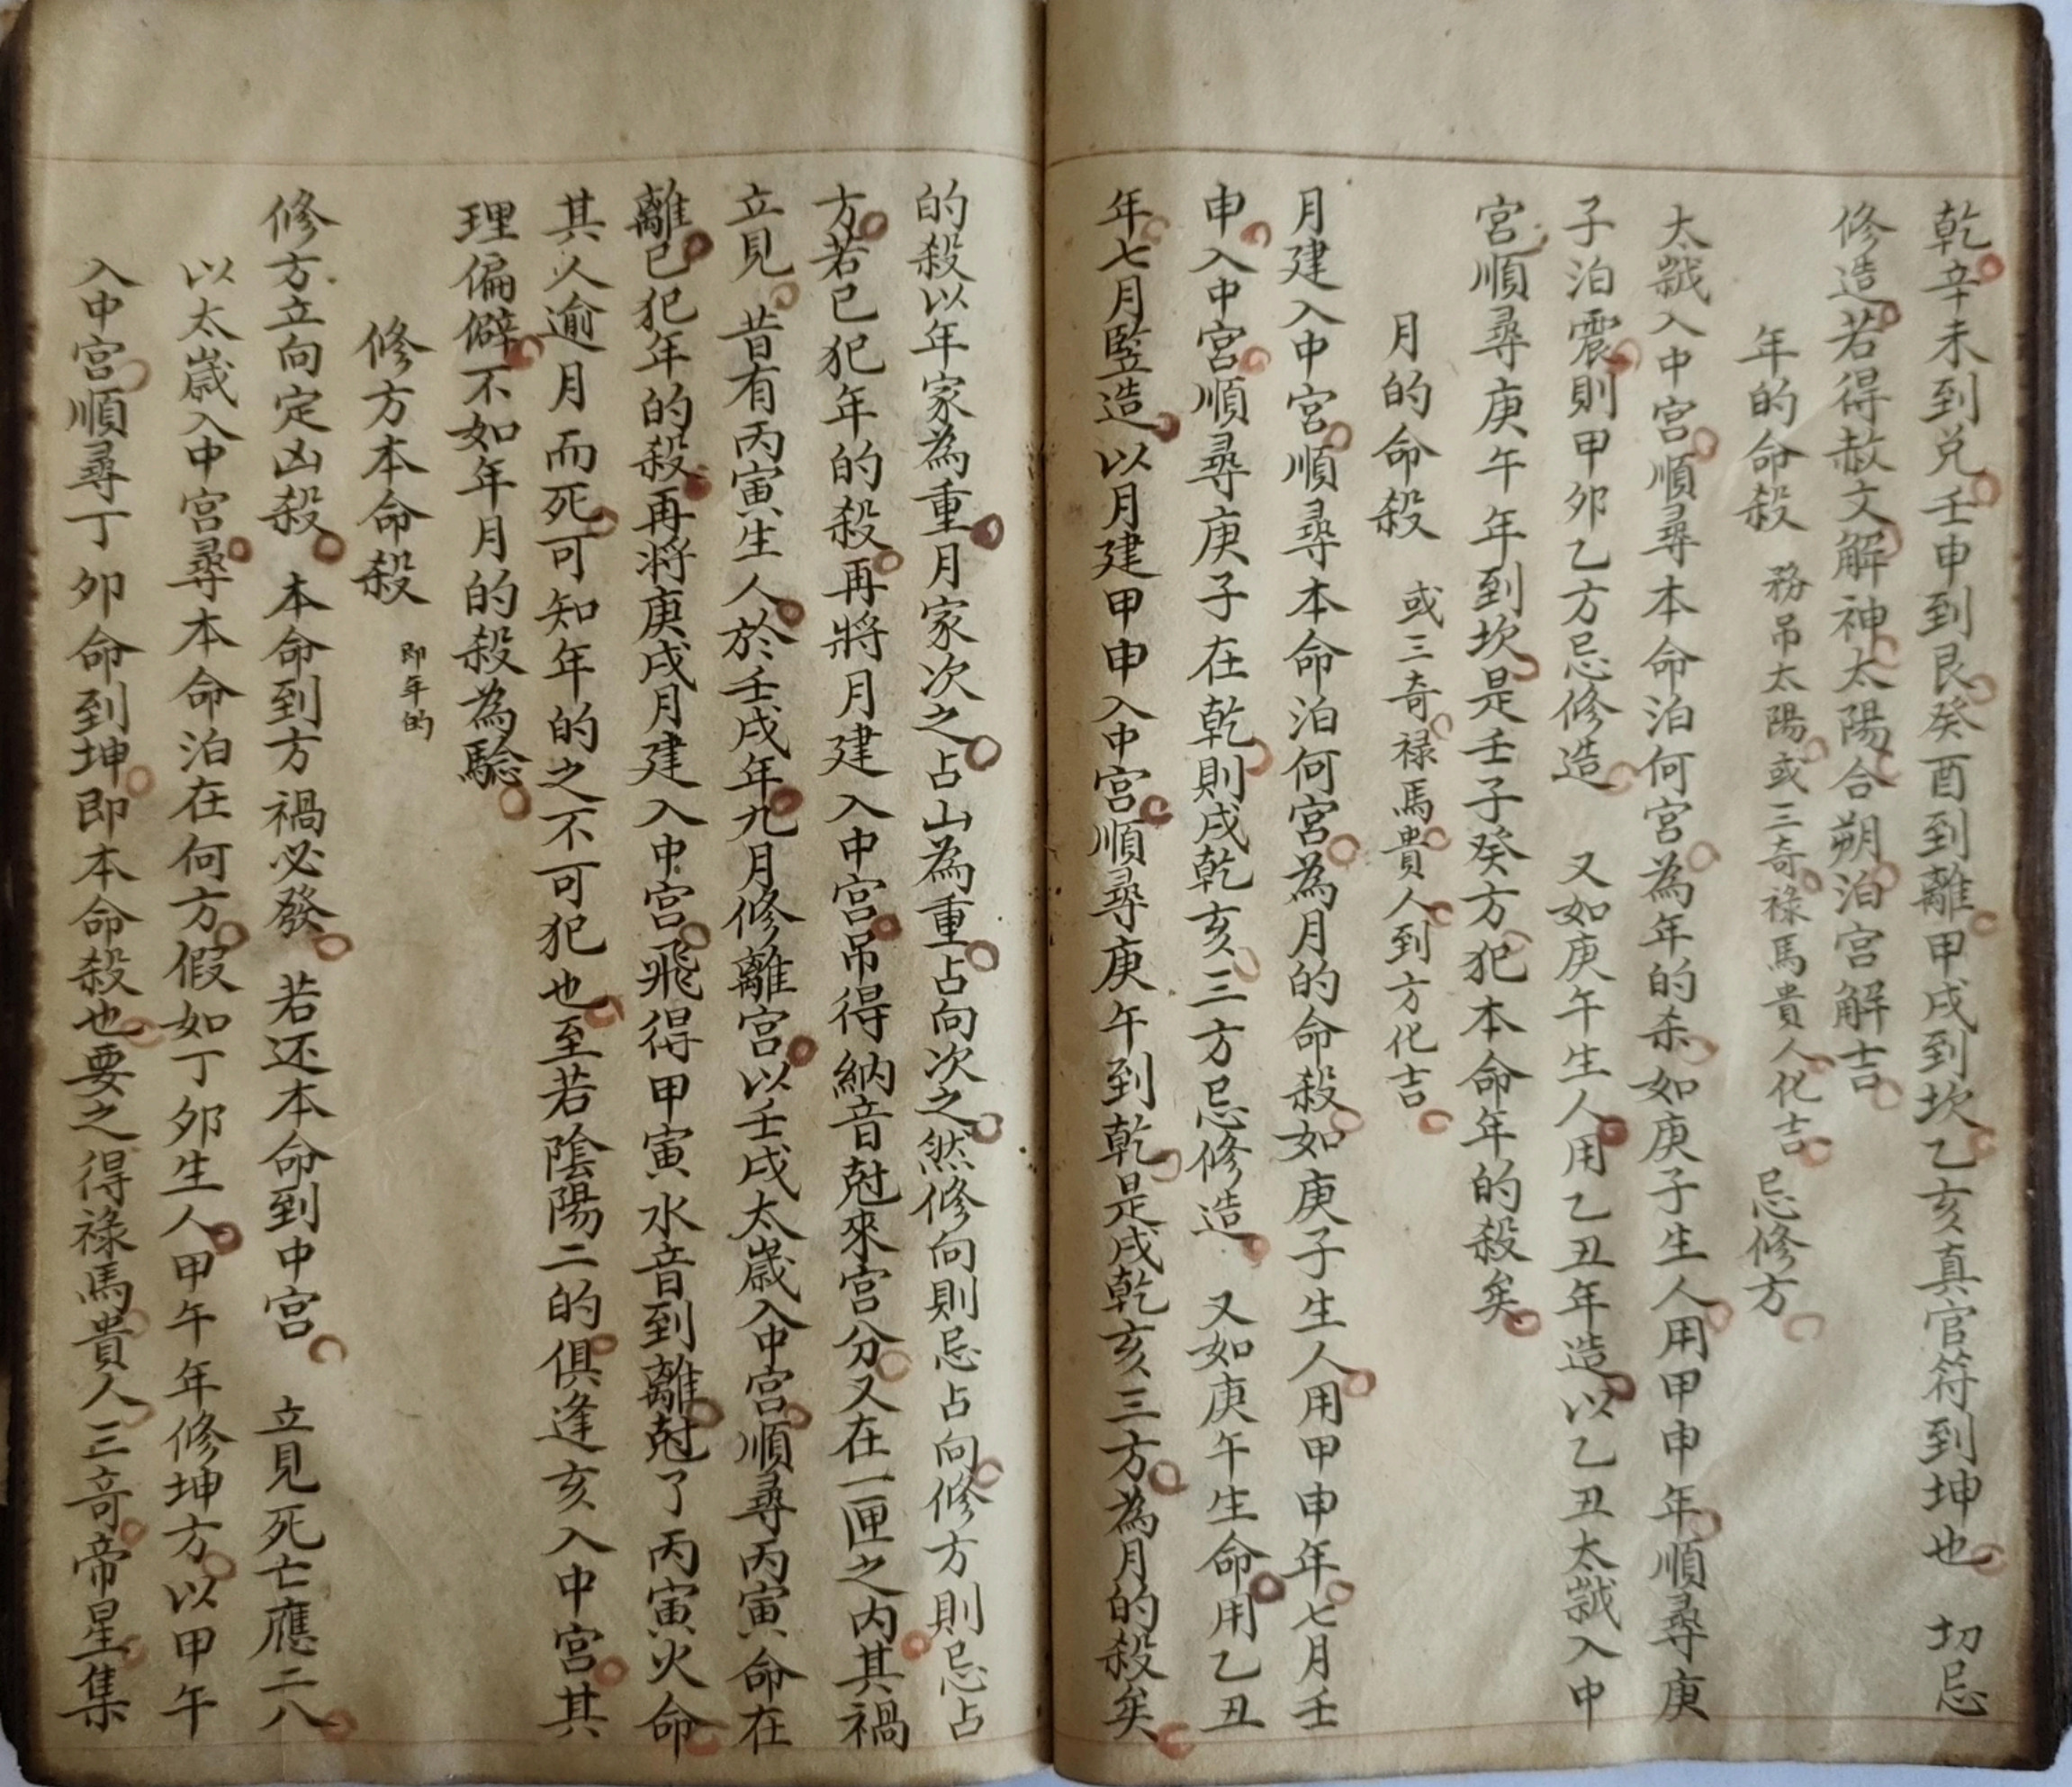 乾辛未到兌壬申到艮癸酉到離甲戌到坎乙亥真官符到坤也 切忌
修造若得赦文解神太陽合朔泊宮解吉
年的命殺 務吊太陽或三奇祿馬貴人化吉 忌修方
太歲入中宮順尋本命泊何宮為年的杀如庚子生人用甲申年順尋庚
子泊震則甲夘乙方忌修造 又如庚午生人用乙丑年造以乙丑太歲入中
宮順尋庚午年到坎是壬子癸方犯本命年的殺矣
月的命殺 或三奇祿馬貴人到方化吉
月建入中宮順尋本命泊何宮為月的命殺如庚子生人用甲申年七月壬
申入中宮順尋庚子在乾則戌乾亥三方忌修造 又如庚午生命用乙丑
年七月竪造以月建甲申入中宮順尋庚午到乾是戌乾亥三方為月的殺矣
的殺以年家為重月家次之占山為重占向次之然修向則忌占向修方則忌占
方若已犯年的殺再將月建入中宮吊得納音尅來宮分又在一匣之内其禍
立見 昔有丙寅生人於壬戌年九月修離宮以壬戌太歲入中宮順尋丙寅命在
離已犯年的殺再将庚戌月建入中宮飛得甲寅水音到離尅了丙寅火命
其人逾月而死可知年的之不可犯也至若陰陽二的俱逢亥入中宮其
理偏僻不如年月的殺為驗
修方本命殺 即年的
修方立向定凶殺 本命到方禍必發 若还本命到中宮 立見死亡應二八
以太歲入中宮尋本命泊在何方假如丁夘生人甲午年修坤方以甲午
入中宮順尋丁夘命到坤即本命殺也要之得祿馬貴人三奇帝星集